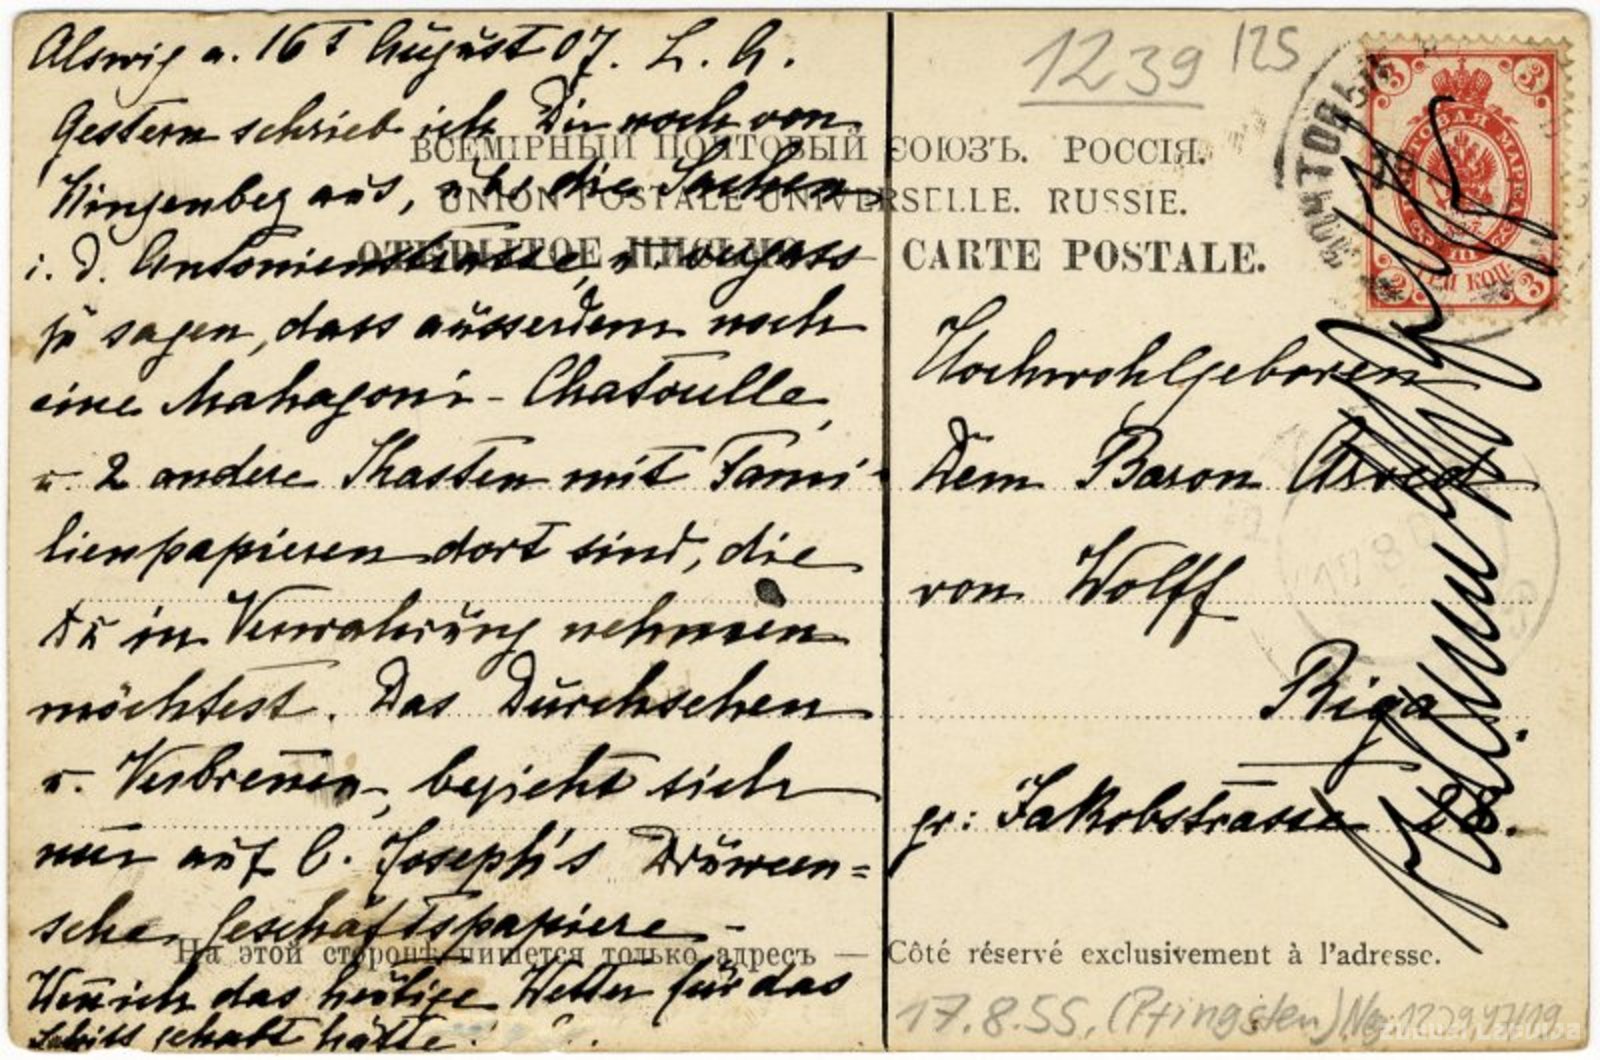 Alswig a. 16t August 07. L. A.
Gestern schrieb ich Dir noch von
Kingenberg aus, die Sachen
i. d. Antonienstrasse, u. vergass
zu sagen, dass ausserdem noch
eine Mahagoni - Chatoulle,
u. 2 andere Kasten mit Fami-
lienpapieren dort sind, die
Du in Verwahrung nehmen
möchtest. Das Durchsehen
u. Verbrennen, bezieht sich
nur auf C. Joseph's Drüween=
sche Geschäftspapiere -
Wenn ich das heutige Wetter für das
gehabt hätte!
1239 125
ВСЕМІРНЫЙ ПОЧТОВЫЙ СОЮЗЪ. РОССІЯ.
UNION POSTALE UNIVERSELLE. RUSSIE.
ОТКРЫТОЕ ПИСЬМО — CARTE POSTALE.
Hochwohlgeboren
Dem Baron Arved
von Wolff
Riga
gr: Jakobstrasse 28.
На этой сторонѣ пишется только адресъ — Côté réservé exclusivement à l'adresse.
17.8.55. (Pfingsten)